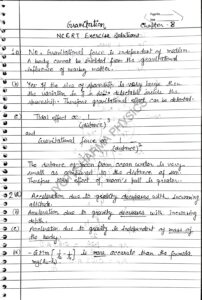 Gravitation Chapter 8
NCERT Exercise Solutions
1.(a) No. Gravitational force is independent of medium.
A body cannot be shielded from the gravitational
influence of nearby matter.
(b) Yes if the size of spaceship is large then
the variation in g is detectable inside the
spaceship. Therefore gravitational effect can be detected.
(c) Tidal effect ∝ 1
(distance)³
and
Gravitational force ∝ 1
(distance)²
The distance of moon from ocean water is very
small as compared to the distance of sun.
Therefore tidal effect of moon's pull is greater.
2.(a) Acceleration due to gravity decreases with increasing
altitude.
(b) Acceleration due to gravity decreases with increasing
depth.
(c) Acceleration due to gravity is independent of mass of
the body.
(d) is more accurate than the formula
PHYSICS